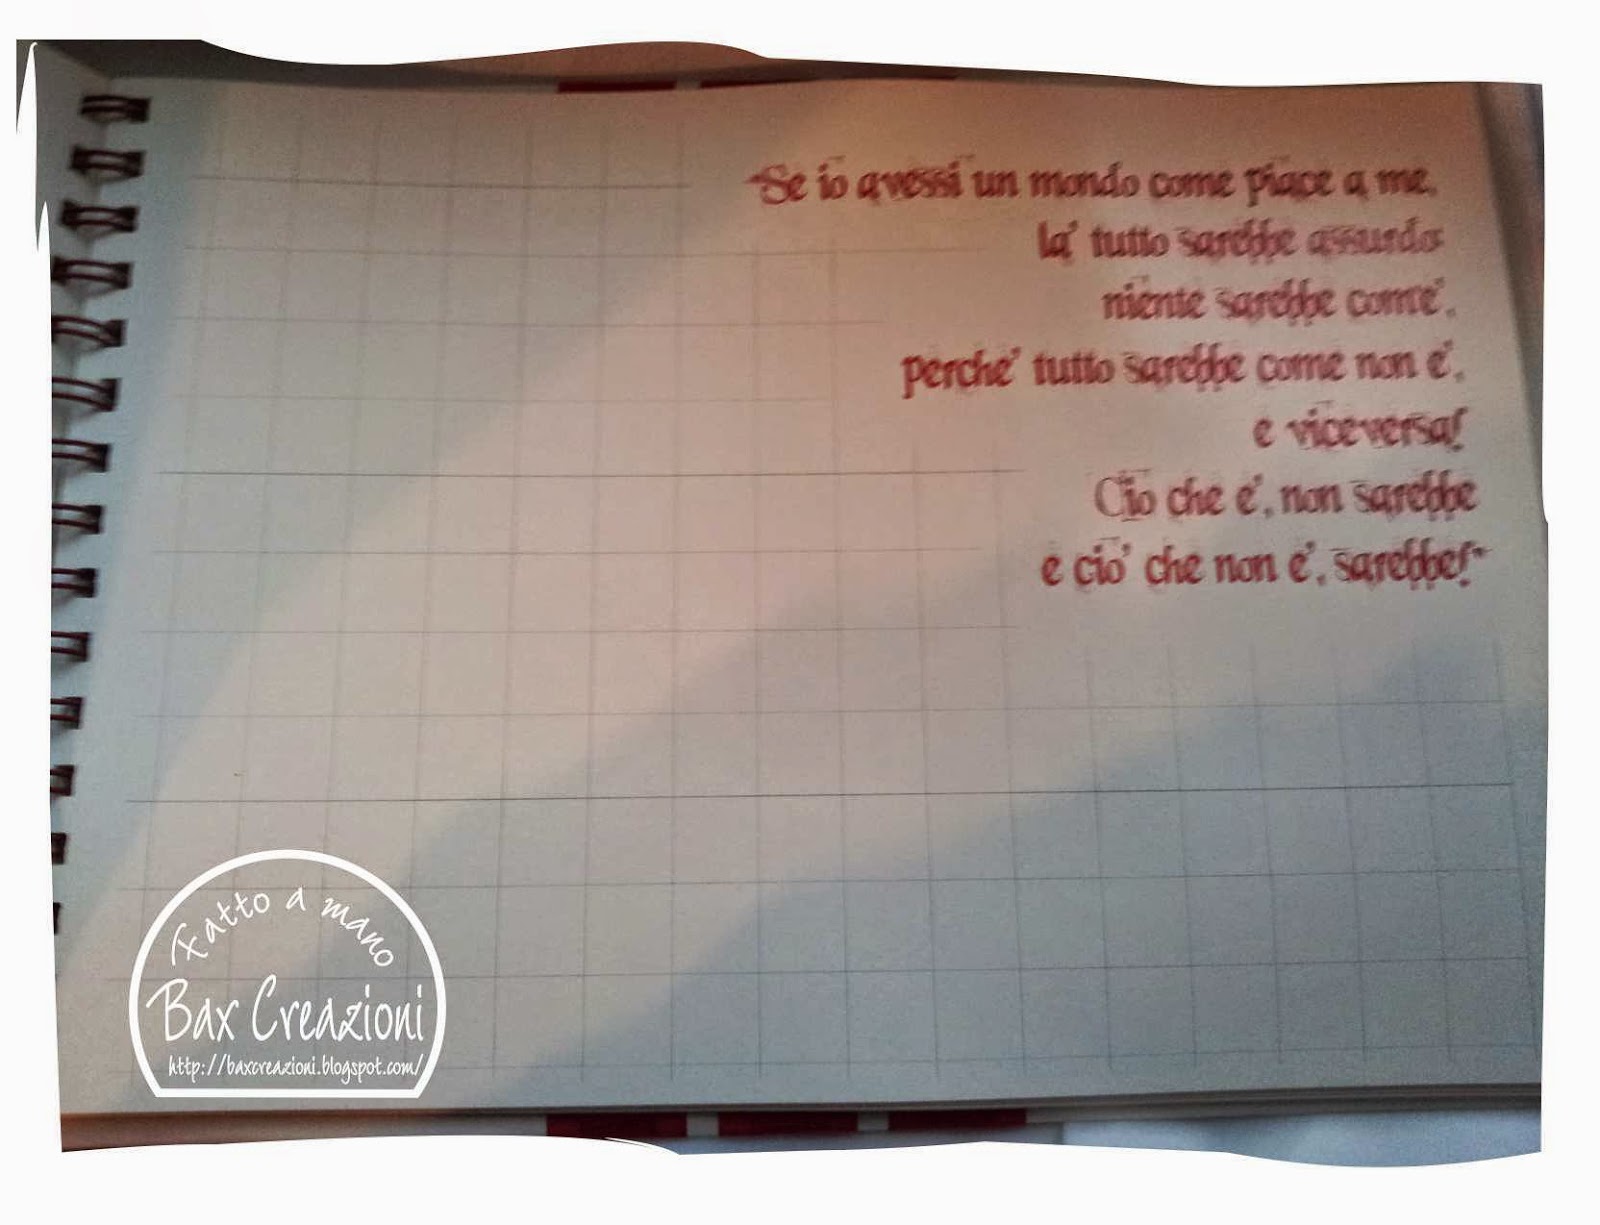 "Se io avessi un mondo come piace a me,
la' tutto sarebbe assurdo:
niente sarebbe com'e',
perche' tutto sarebbe come non e',
e viceversa!
Cio che e', non sarebbe
e cio' che non e', sarebbe!"
Fatto a mano
Bax Creazioni
http://baxcreazioni.blogspot.com/